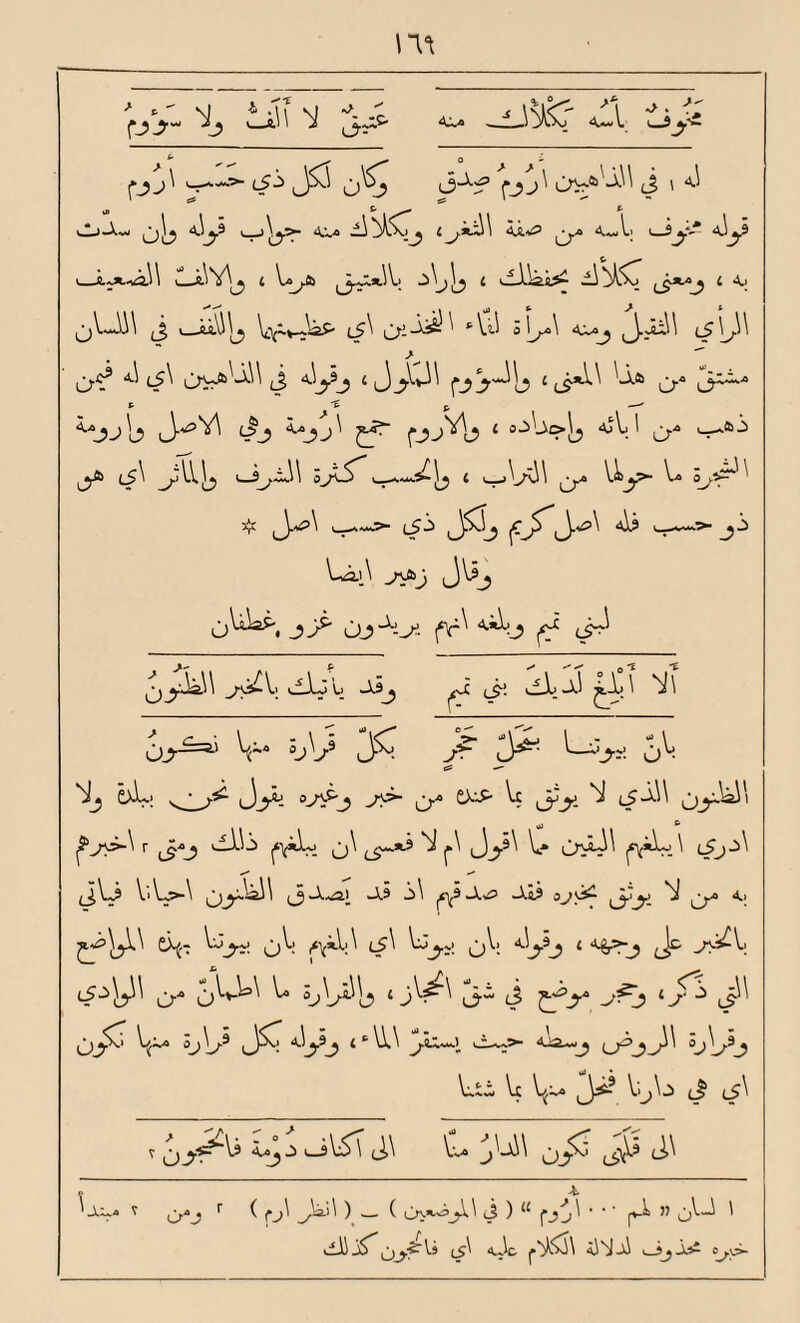 ١٦٩
مخوف بأسه يكلأك منه عتيق لا ألف ولا سؤوم
له ١ في الذاهبين أروم صدق وكان لكل ذي حسب أروم
قوله مخوف بأسه من صفة الثغر، ويكلأك منه جواب قوله وان سدت
به ، ومعنى يكلأك يحفظك ، واراد بالعتيق هرما ، والألف الضعيف
الرأي الثقيل ومنه امرأة لفاء الفخذين اي عظيمتهما واللفف في اللسان
مشتق من هذا المعنى ، والسؤوم الملول ، وقوله في الذاهبين اي له فيمن
ذهب من آبائه واجداده ، والأروم جمع أرومة وهي الأصل وأرومة
الشجرة ما حولها من التراب ، والحسب كثرة الشرف والمآثر اي هو
ذو حسب فله اصل كريم ولكل ذي حسب اصل ❊
وقال زهير ايضا
لبني تميم وبلغه انهم يريدون غزو غطفان
ألا أبلغ لديك بني تميم وقد يأتيك بالخبر الظنون
بان بيوتنا بمحل حجر بكل قرارة منها نكون
الظنون الذي لا يوثق بما عنده من خبر وغيره يقول نحن بمكان ولا
ادري أيبلغهم اليقين مما اقول ام لا فعسى ان يبلغهم ذلك ومعنى ٢ اخبرهم
به من لا يوثق بخبره فقد صدقهم اذ قد يصدق الظنون احيانا فيأتي
بالخبر على وجهه ، وقوله بان بيوتنا اي ابلغهم بان بيوتنا بهذه المواضع
التي ذكر ، وحجر موضع في شق الحجاز ، والقرارة ما اطمأن من الوادي
وقرارة الروض وسطه حيث يستقر الماء ، وقوله بكل قرارة منها نكون
اي هي دارنا فنحل منها بما شئنا
الى قلهى تكون الدار منا الى أكناف دومة فالحجون ٣
١ لسان « لهم ... أروم » ( في الموضعين ) — ( انظر ارم ) ٢ ومن ٣ مبتدأ
خبره محذوف لدلالة الكلام عليه اي فالحجون كذلك